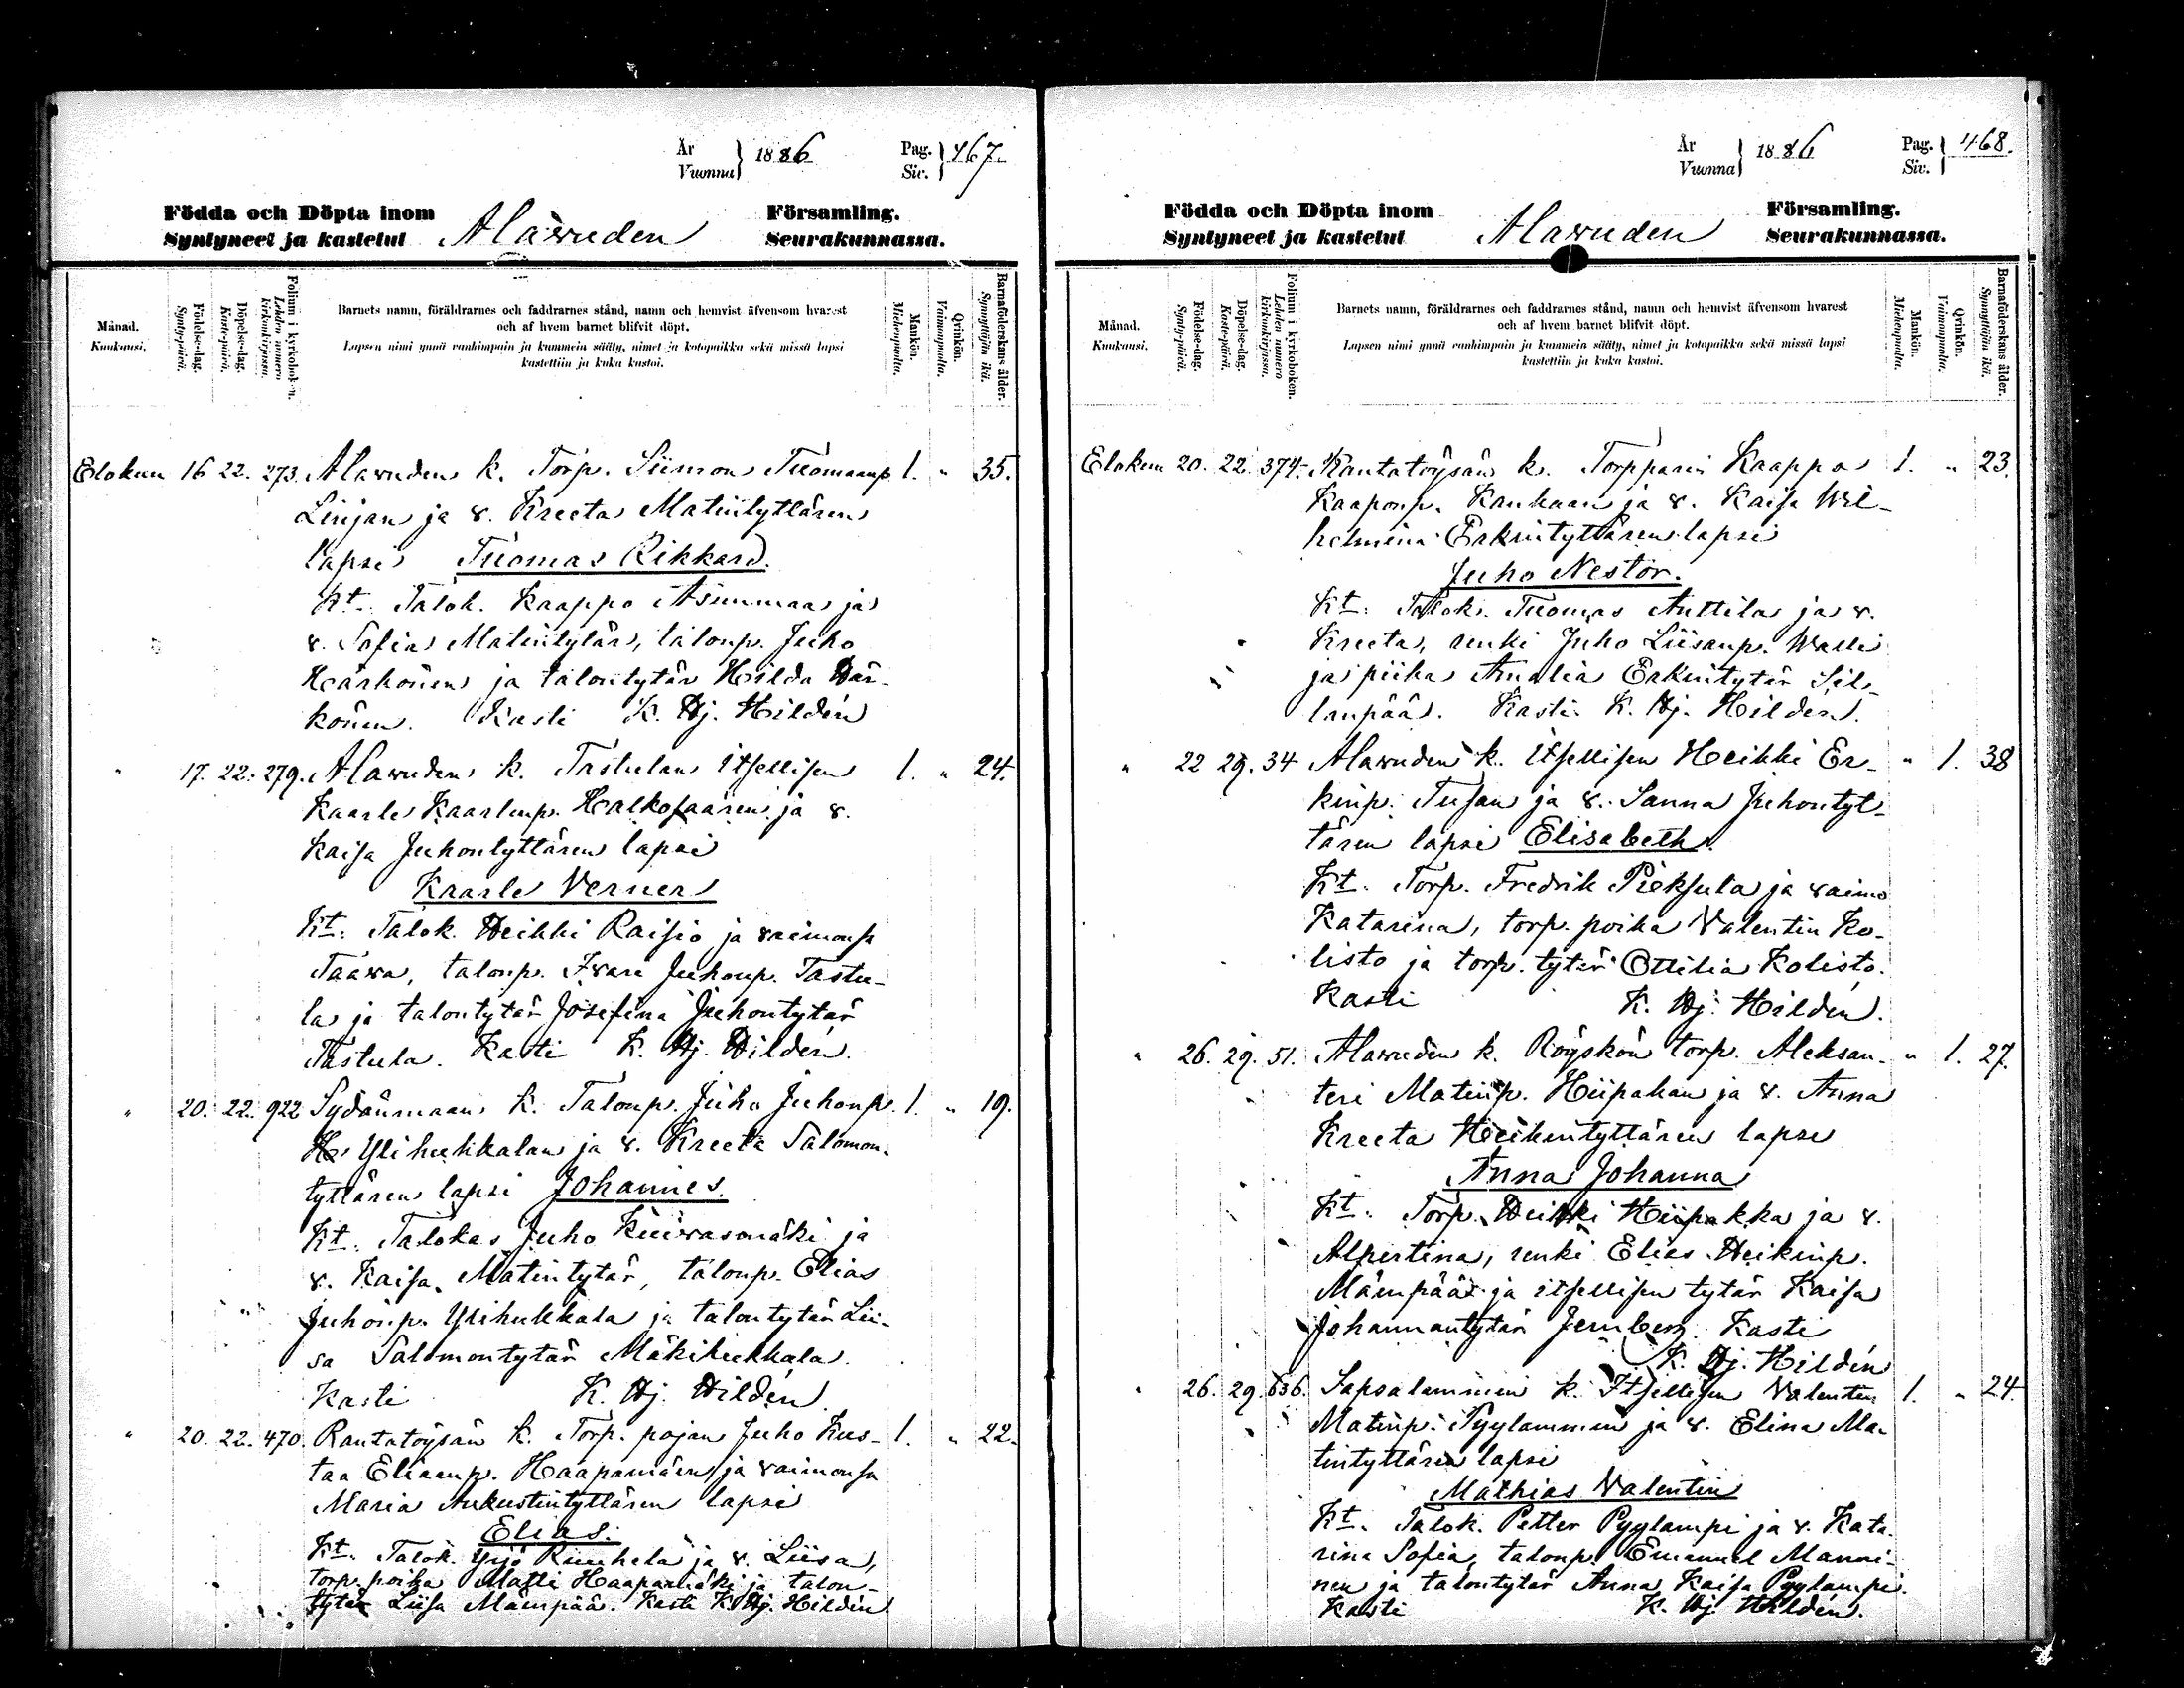 År
Vuonna } 1886
Pag.
Siv. } 467.
Födda och Döpta inom
Syntyneet ja kastetut
Alawuden
Församling.
Seurakunnassa.
Månad.
Kuukausi.
Födelse-dag.
Syntypäivä.
Döpelse-dag.
Kastepäivä.
Folium i kyrkoboken.
Lehden numero
kirkonkirjassa.
Barnets namn, föräldrarnes och faddrarnes stånd, namn och hemvist äfvensom hvarest
och af hvem barnet blifvit döpt.
Lapsen nimi ynnä vanhimpain ja kummein sääty, nimet ja kotopaikka sekä missä lapsi
kastettiin ja kuka kastoi.
Mankön.
Miehenpuolta.
Qvinkön.
Vaimonpuolta.
Barnaföderskans ålder.
Synnyttäjän ikä.
Elokuu 16 22. 273. Alawuden k. Torp. Siimon Tuomaanp. 1. " 35.
Linjan ja v. Kreeta Matintyttären
lapsi Tuomas Rikkard.
Kt. Talok. Kaappo Asunmaa ja
v. Sofia Matintytär, talonp. Juho
Härkönen ja talontytär Hilda Här-
könen. Kasti K. Hj. Hildén
" 17. 22. 279. Alawuden k. Tastulan itsellisen 1. " 24.
Kaarle Kaarlenp. Halkosaaren ja v.
Kaisa Juhontyttären lapsi
Kaarle Verner
Kt. Talok. Heikki Raisio ja vaimonsa
Taawa, talonp. Iwari Juhonp. Tastu-
la ja talontytär Josefina Juhontytär
Tastula. Kasti K. Hj. Hildén.
" 20. 22. 922 Sydänmaan k. Talonp. Juho Juhonp. 1. " 19.
Ylihukkalan ja v. Kreeta Salomon-
tyttären lapsi Johannes.
Kt. Talokas Juho Kuiwasmäki ja
v. Kaisa Matintytär, talonp. Elias
Juhonp. Ylihukkala ja talontytär Lii-
sa Salomontytär Mäkihukkala.
Kasti K. Hj. Hildén
" 20. 22. 470. Rantatöysän k. Torp. pojan Juho Kus- 1. " 22.
taa Eliaanp. Haapamäen ja vaimonsa
Maria Aukustintyttären lapsi
Elias.
Kt. Talok. Yrjö Ruuhela ja v. Liisa,
torp. poika Matti Haapamäki ja talon-
tytär Liisa Mämpää. Kasti K. Hj. Hildén.
År
Vuonna } 1886
Pag.
Siv. } 468.
Födda och Döpta inom
Syntyneet ja kastetut
Alawuden
Församling.
Seurakunnassa.
Månad.
Kuukausi.
Födelse-dag.
Syntypäivä.
Döpelse-dag.
Kastepäivä.
Folium i kyrkoboken.
Lehden numero
kirkonkirjassa.
Barnets namn, föräldrarnes och faddrarnes stånd, namn och hemvist äfvensom hvarest
och af hvem barnet blifvit döpt.
Lapsen nimi ynnä vanhimpain ja kummein sääty, nimet ja kotopaikka sekä missä lapsi
kastettiin ja kuka kastoi.
Mankön.
Miehenpuolta.
Qvinkön.
Vaimonpuolta.
Barnaföderskans ålder.
Synnyttäjän ikä.
Elokuu 20. 22. 374. Rantatöysän k. Torpparin Kaappo 1. " 23.
Kaaponp. Kankaan ja v. Kaisa Wil-
helmina Erkintyttären lapsi
Juho Nestor.
Kt. Talok. Tuomas Anttila ja v.
Kreeta, renki Juho Liisanp. Walli
ja piika Amalia Erkintytär Sil-
lanpää. Kasti K. Hj. Hildén.
" 22 29. 34 Alawuden k. itsellisen Heikki Er- " 1. 38
kinp. Tusan ja v. Sanna Juhontyt-
tären lapsi Elisabeth.
Kt. Torp. Fredrik Pieksula ja vaimo
Katarina, torp. poika Valentin Ko-
listo ja torp. tytär Ottilia Kolisto.
Kasti K. Hj. Hildén.
" 26. 29. 51. Alawuden k. Röyskön torp. Aleksan- " 1. 27.
teri Matinp. Hiipakan ja v. Anna
Kreeta Heikintyttären lapsi
Anna Johanna
Kt. Torp. Heikki Hiipakka ja v.
Alpertina, renki Elias Heikinp.
Mämpää ja itsellisen tytär Kaisa
Johannantytär Jernberg. Kasti
K. Hj. Hildén
" 26. 29. 636. Sapsalammin k. Itsellisen Valentin 1. " 24
Matinp. Pyylammin ja v. Elina Ma-
tintyttären lapsi
Mathias Valentin
Kt. Talok. Petter Pyylampi ja v. Kata-
rina Sofia, talonp. Emanuel Manni-
nen ja talontytär Anna Kaisa Pyylampi.
Kasti K. Hj. Hildén.